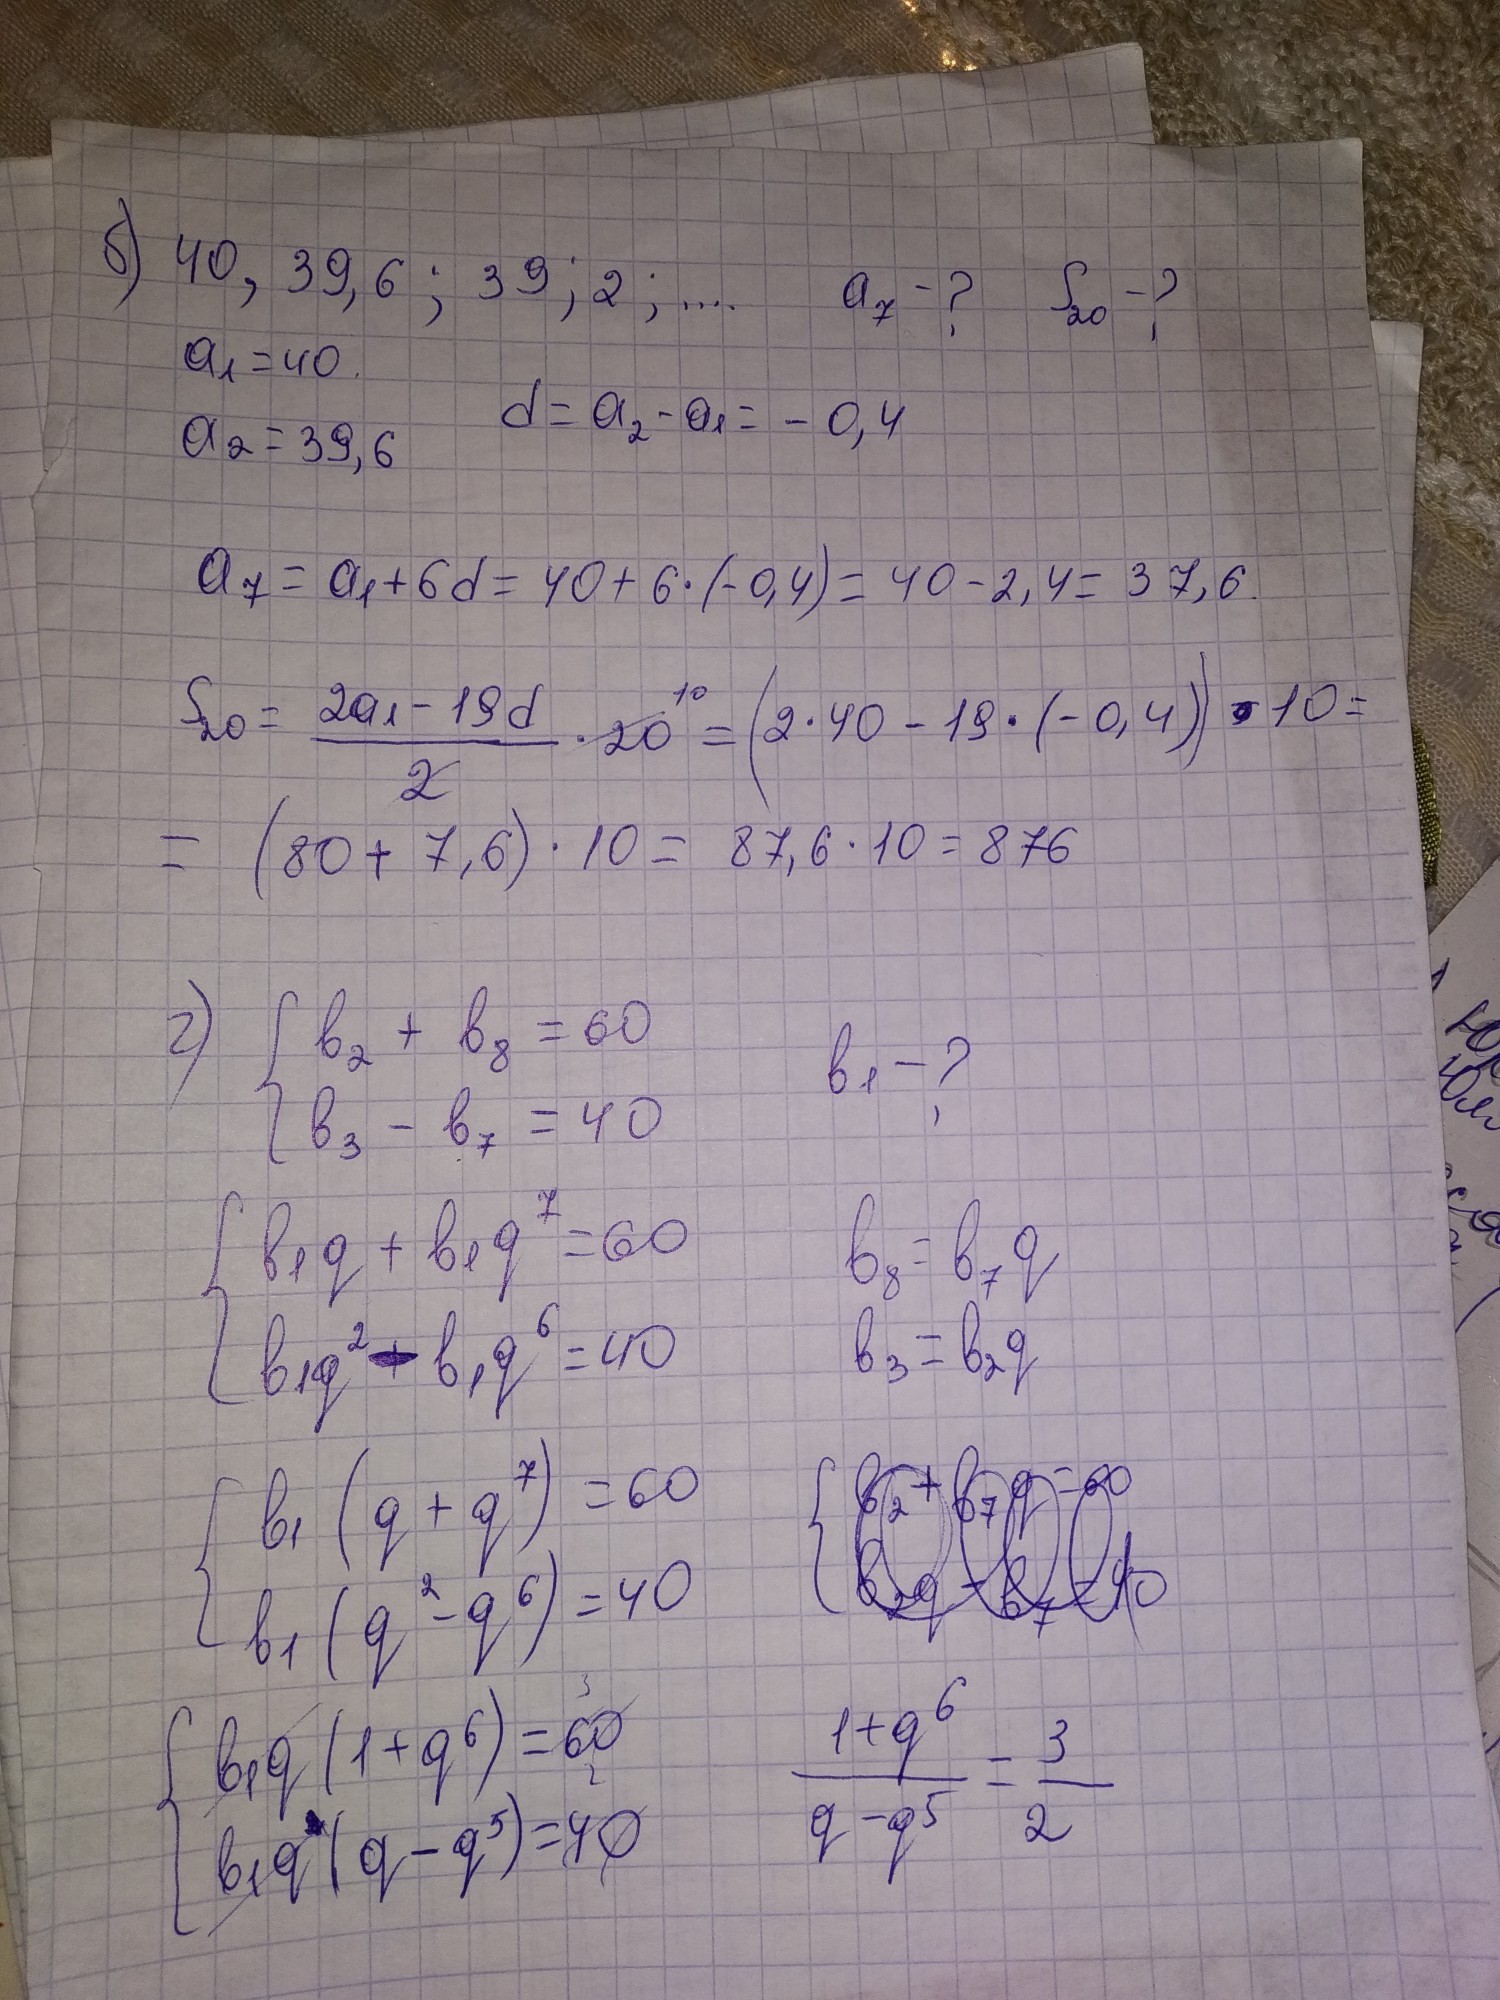 б) 40, 39,6; 39;2; .... a₇ - ? S₂₀ - ?
a₁ = 40.
a₂ = 39,6 d = a₂ - a₁ = - 0,4
a₇ = a₁ + 6d = 40 + 6·(-0,4) = 40 - 2,4 = 37,6.
S₂₀ = (2a₁ - 19d)/2 · 20 ¹⁰ = (2·40 - 19·(-0,4)) · 10 =
= (80 + 7,6) · 10 = 87,6 · 10 = 876
г) { b₂ + b₈ = 60 b₁ - ?
b₃ - b₇ = 40
{ b₁q + b₁q⁷ = 60 b₈ = b₇q
b₁q² - b₁q⁶ = 40 b₃ = b₂q
{ b₁(q + q⁷) = 60 { b₂ + b₇q = 60
b₁(q² - q⁶) = 40 b₂q - b₇ = 40
{ b₁q(1 + q⁶) = 60 3 (1 + q⁶)/(q - q⁵) = 3/2
b₁q(q - q⁵) = 40 2